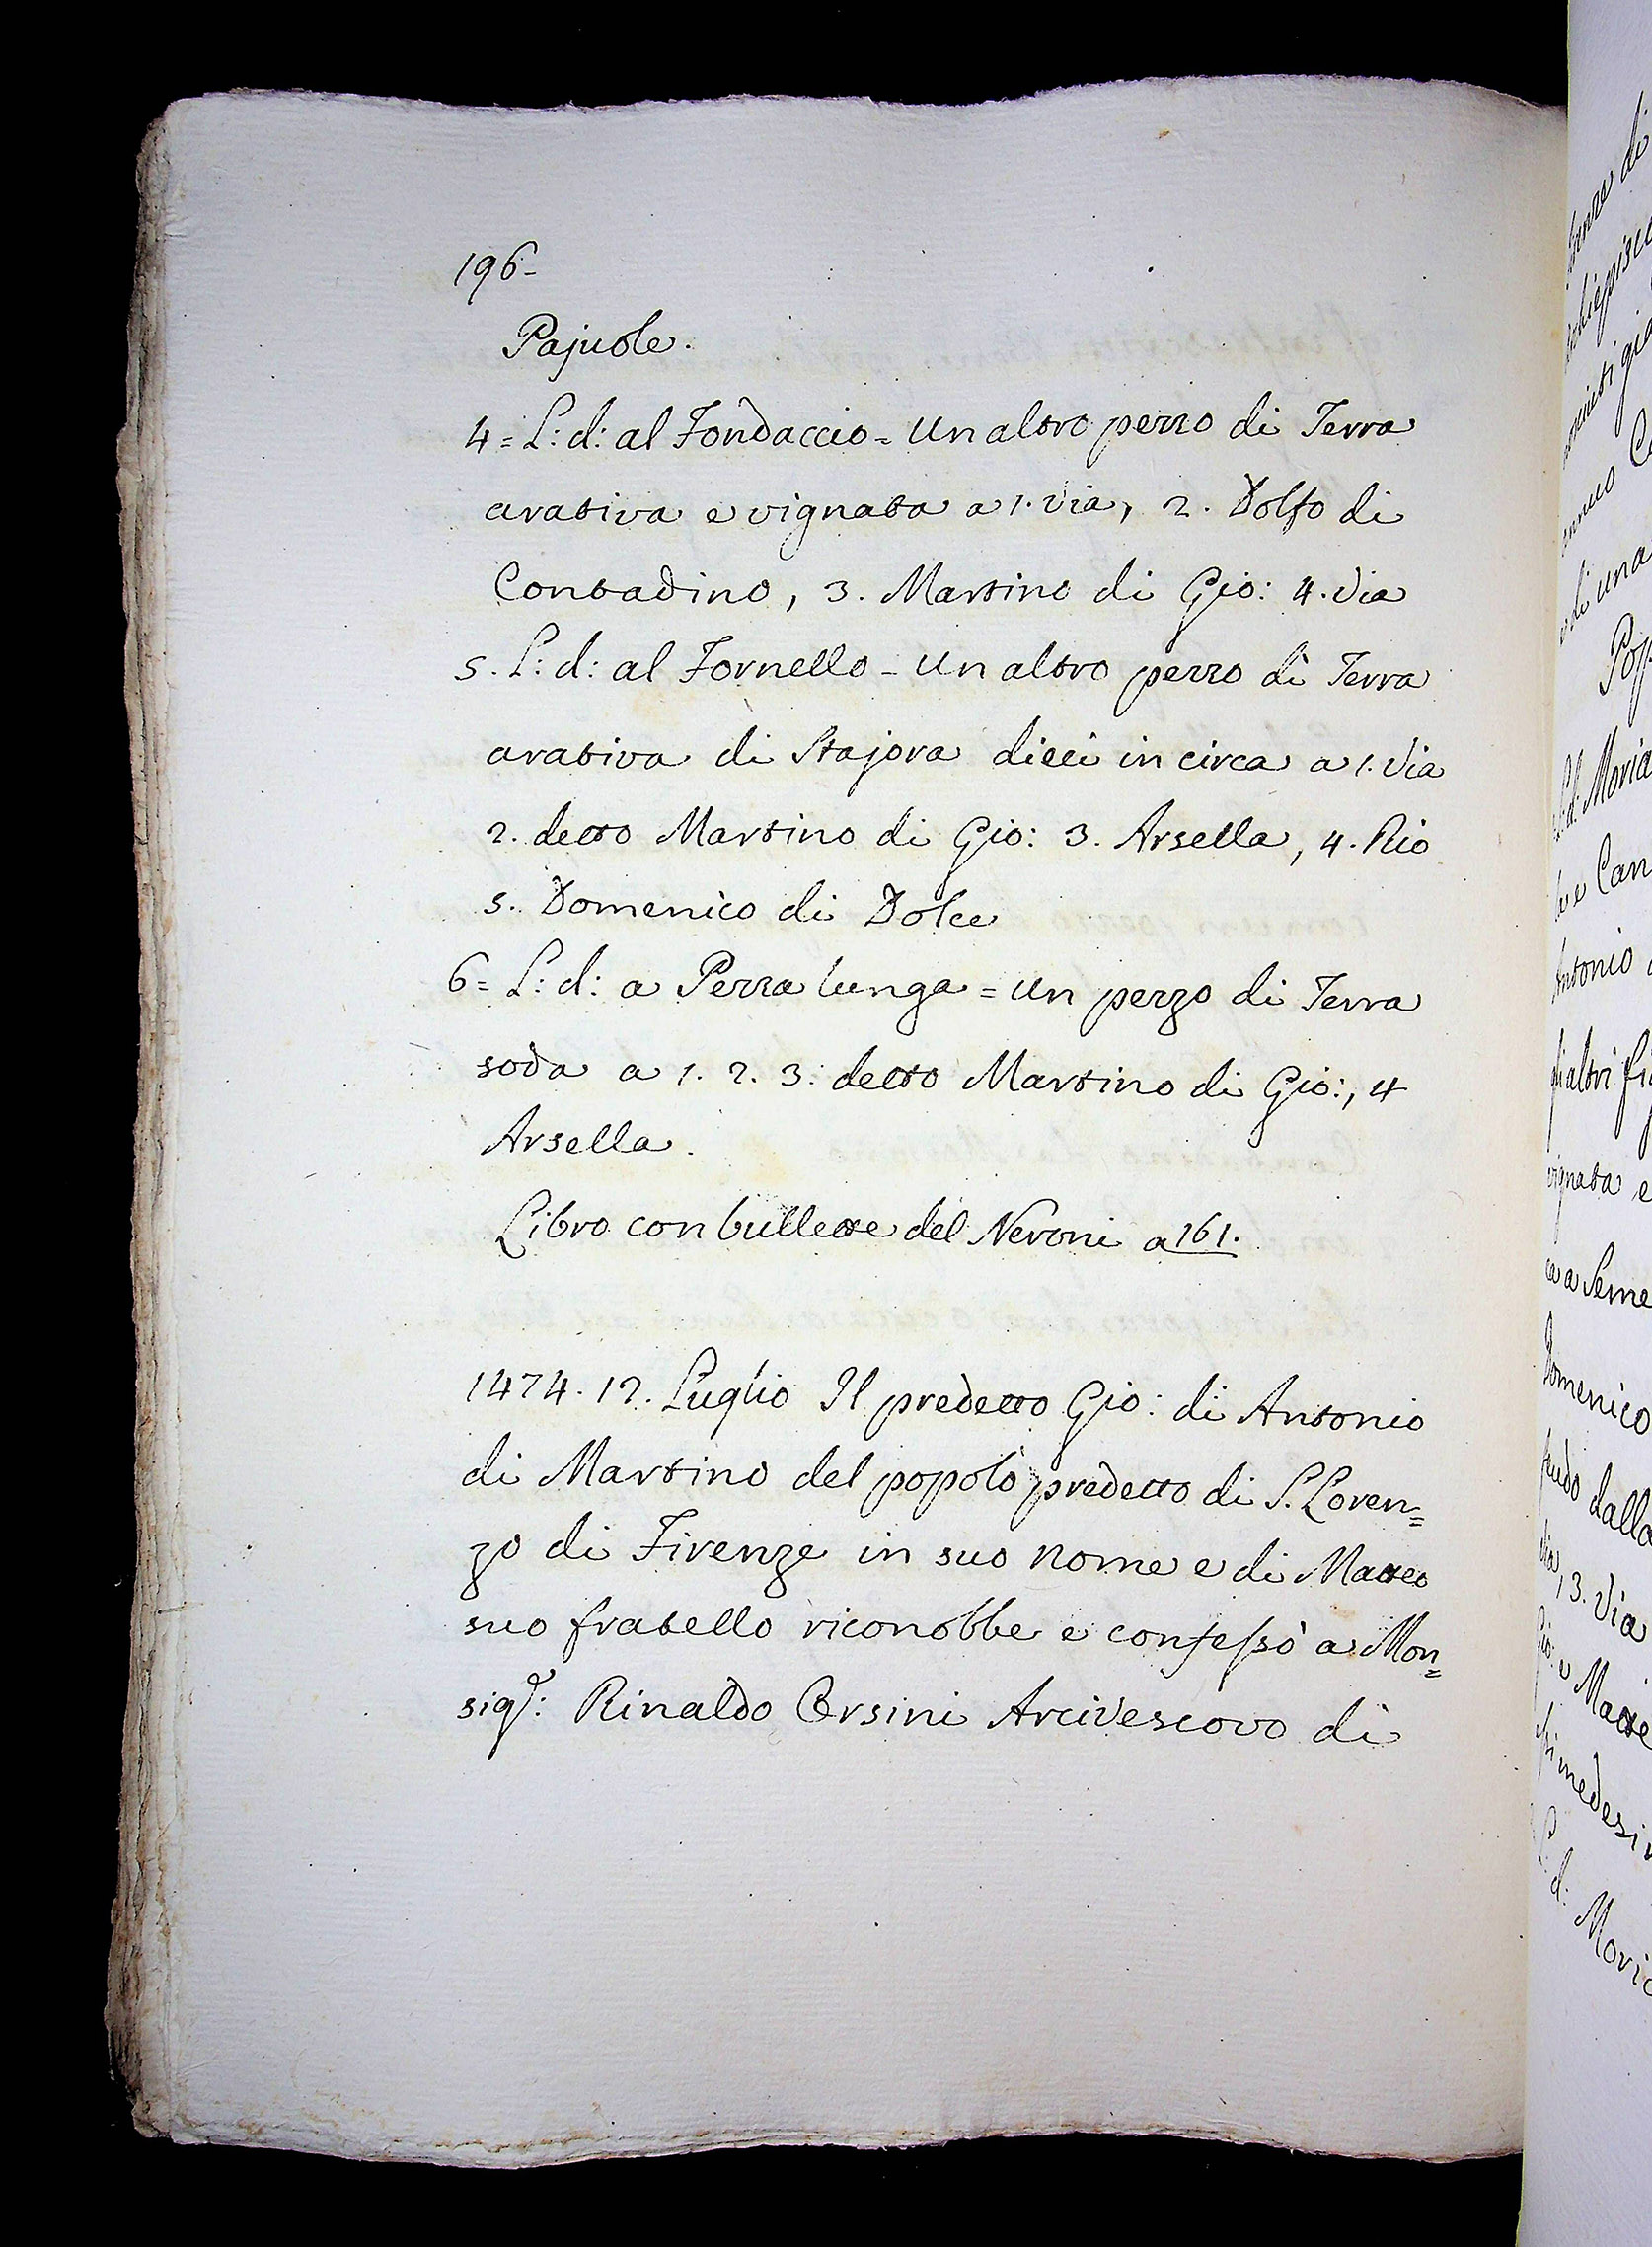 196-
Pajuole.
4= L: d: al Fondaccio = Un altro pezzo di Terra
arativa e vignata a 1. via, 2. Dolfo di
Contadino, 3. Martino di Gio: 4. Via
5. L: d: al Fornello - Un altro pezzo di Terra
arativa di Stajora dieci in circa a 1. Via
2. detto Martino di Gio: 3. Arsella, 4. Rio
5. Domenico di Dolce
6= L: d: a Pezza lunga = Un pezzo di Terra
soda a 1. 2. 3: detto Martino di Gio:, 4
Arsella.
Libro con bullette del Neroni a 161.
1474. 12. Luglio Il predetto Gio: di Antonio
di Martino del popolo predetto di S. Loren=
zo di Firenze in suo nome e di Matteo
suo fratello riconobbe e confessò a Mon=
sigr: Rinaldo Orsini Arcivescovo di
di
una
Can
Antonio
altri
vignata e
a Seme
Domenico
dalla
3. Via
e Matte
medesi
d: